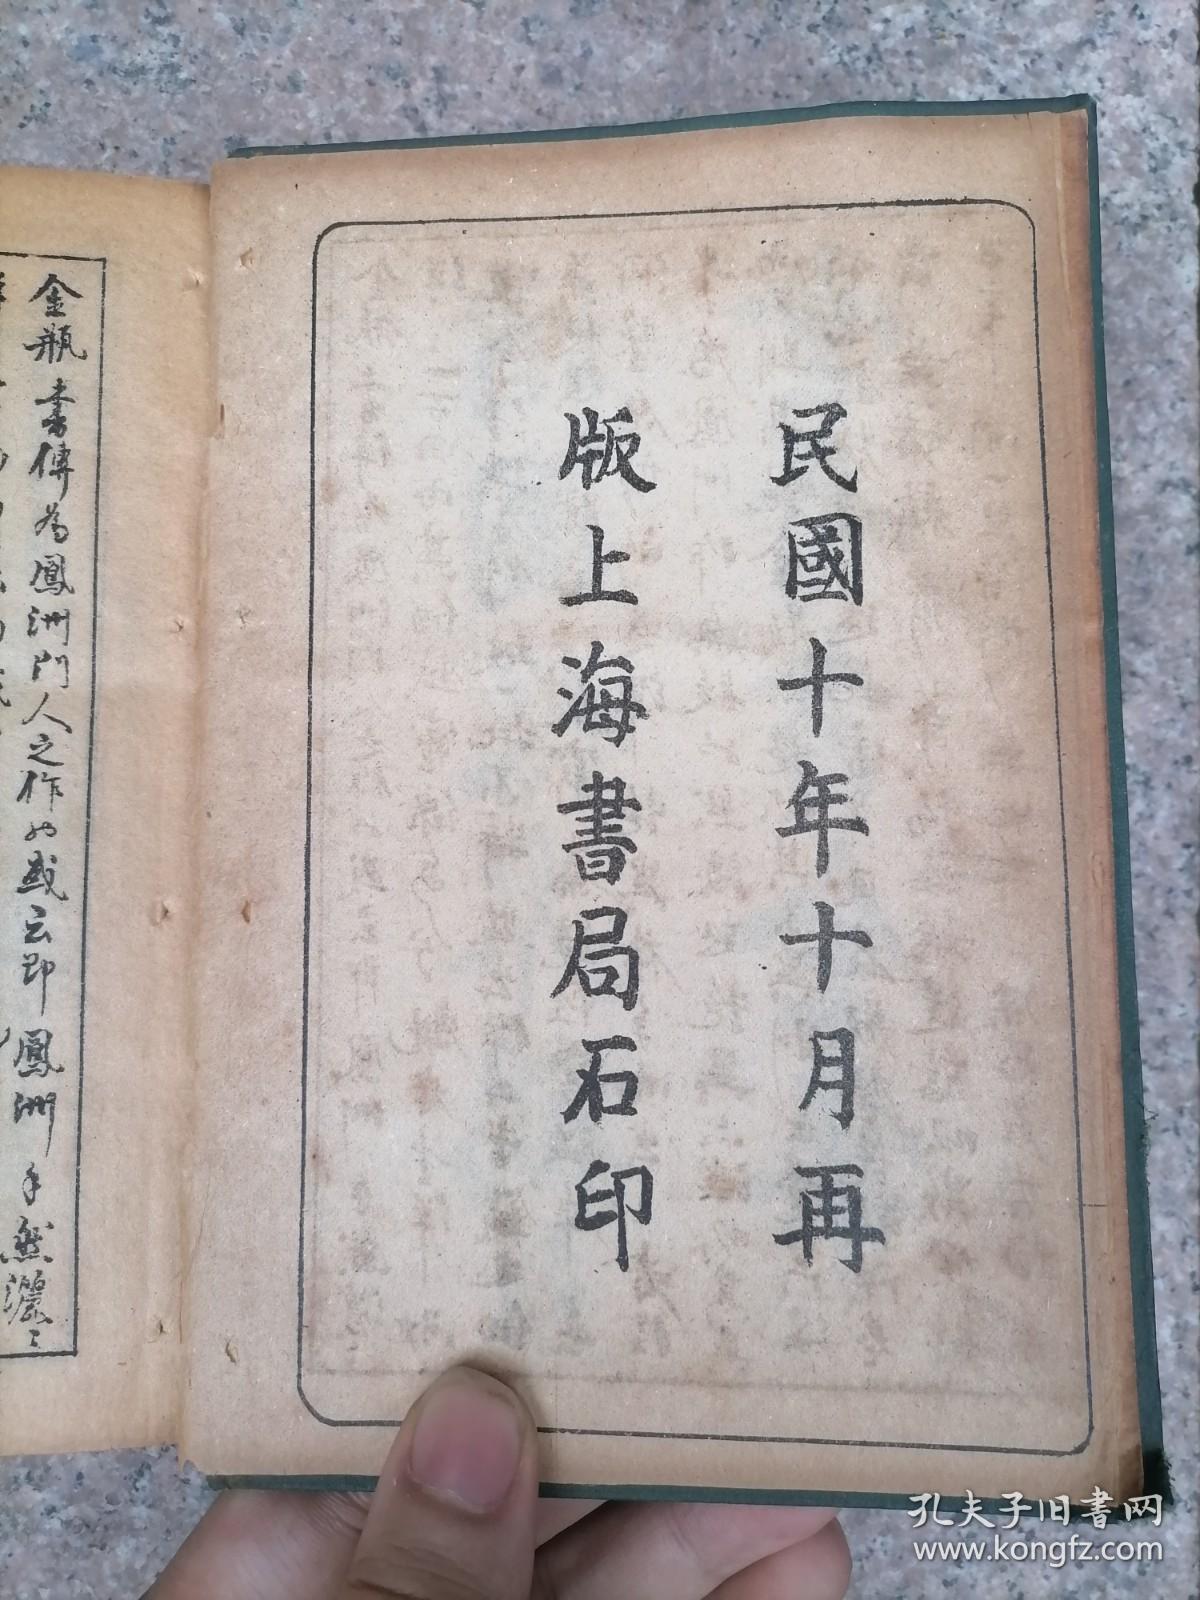 民國十年十月再
版上海書局石印
金瓶書傳為鳳洲門人之作也或云即鳳洲手然灑〻
孔夫子旧書网
www.kongfz.com